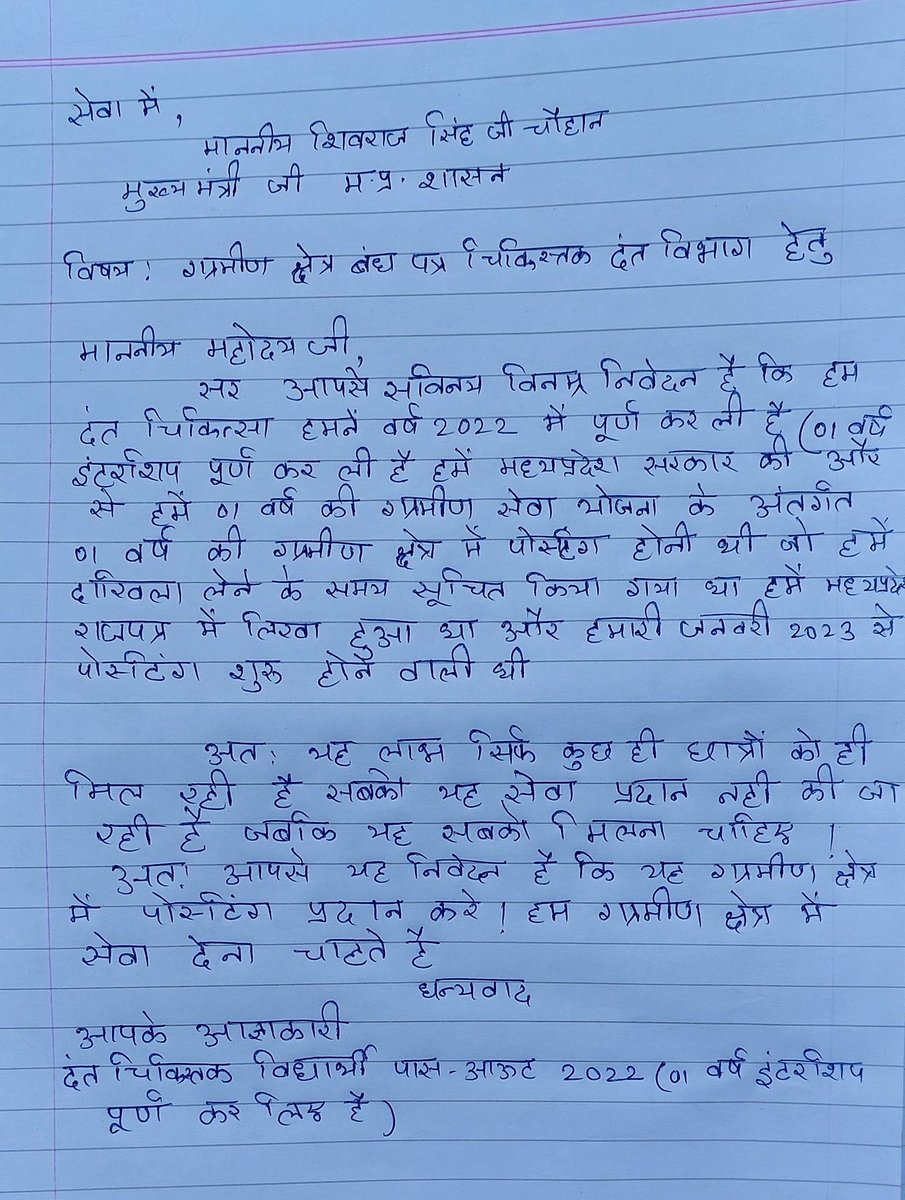 सेवा में,
माननीय शिवराज सिंह जी चौहान
मुख्य मंत्री जी म.प्र. शासन
विषय: ग्रामीण क्षेत्र बंध पत्र चिकिस्तक दंत विभाग हेतु
माननीय महोदय जी,
सर आपसे सविनय विनम्र निवेदन है कि हम
दंत चिकित्सा हमनें वर्ष 2022 में पूर्ण कर ली है (01 वर्ष
इंटर्रशिप पूर्ण कर ली है हमें मध्यप्रदेश सरकार की और
से हमें 01 वर्ष की ग्रामीण सेवा योजना के अंतर्गत
01 वर्ष की ग्रामीण क्षेत्र में पोस्टिंग होनी थी जो हमें
दाखिला लेने के समय सूचित किया गया था हमें मध्यप्रदेश
राजपत्र में लिखा हुआ था और हमारी जनवरी 2023 से
पोस्टिंग शुरू होने वाली थी
अतः यह लाभ सिर्फ कुछ ही छात्रों को ही
मिल रही है सबको यह सेवा प्रदान नही की जा
रही है जबकि यह सबको मिलना चाहिए।
अतः आपसे यह निवेदन है कि यह ग्रामीण क्षेत्र
में पोस्टिंग प्रदान करे। हम ग्रामीण क्षेत्र में
सेवा देना चाहते है
धन्यवाद
आपके आज्ञाकारी
दंत चिकिस्तक विद्यार्थी पास-आऊट 2022 (01 वर्ष इंटर्रशिप
पूर्ण कर लिए है)